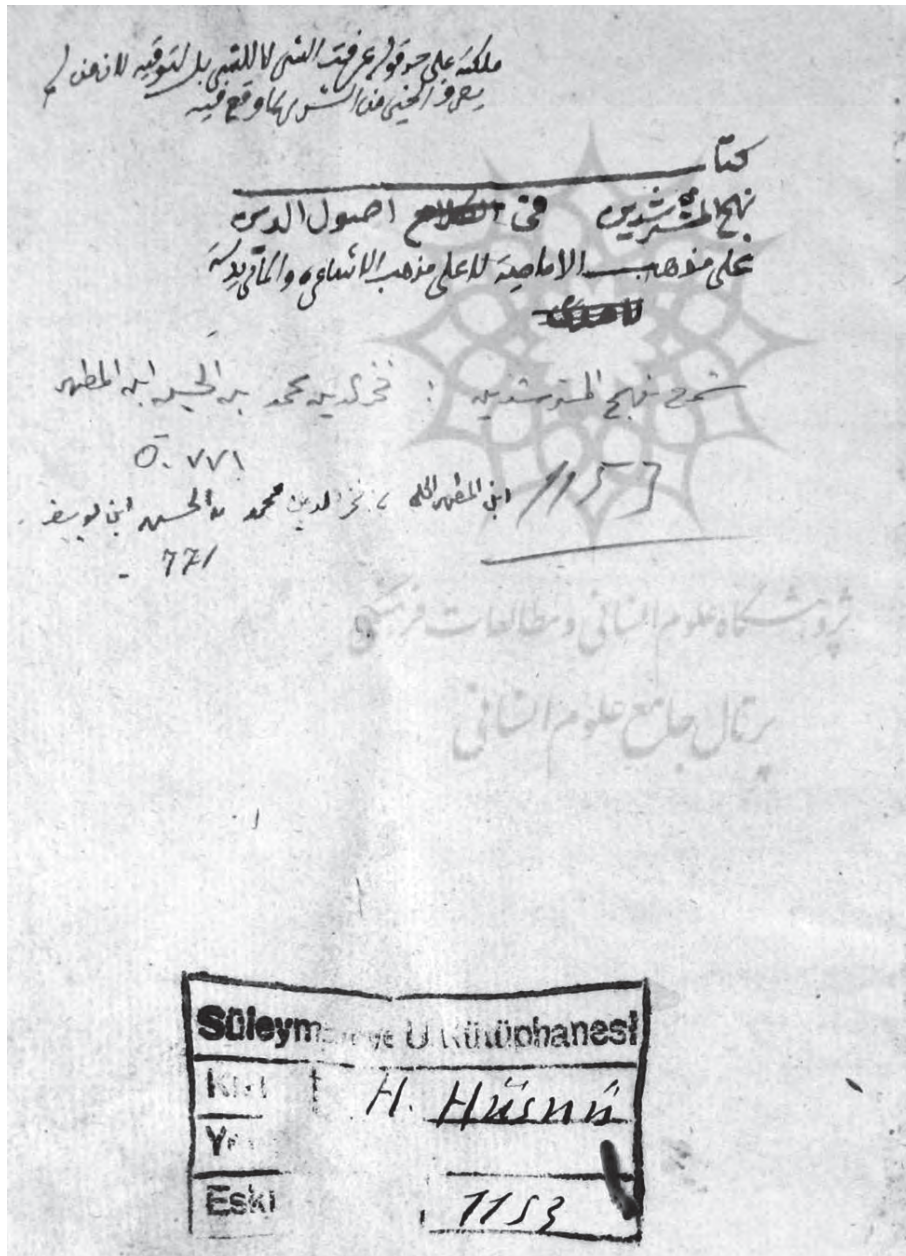 ملكته على حد قوله عرفت الشر لا للشر بل لتوقيه لان من لم
يعرف الخير من الشر ربما وقع فيه
كتاب
نهج المسترشدين في اصول الدين
على مذهب الامامية لا على مذهب الاشاعره والماتريدية
شرح نهج المسترشدين : فخرالدين محمد بن الحسن ابن المطهر
٧٧١
ابن المطهر الحلي ، فخر الدين محمد بن الحسن ابن يوسف
771
1153
پژوهشگاه علوم انسانی و مطالعات فرهنگی
پرتال جامع علوم انسانی
Süleymaniye U Kütüphanesi
H. Hüsnü
Eski 1153